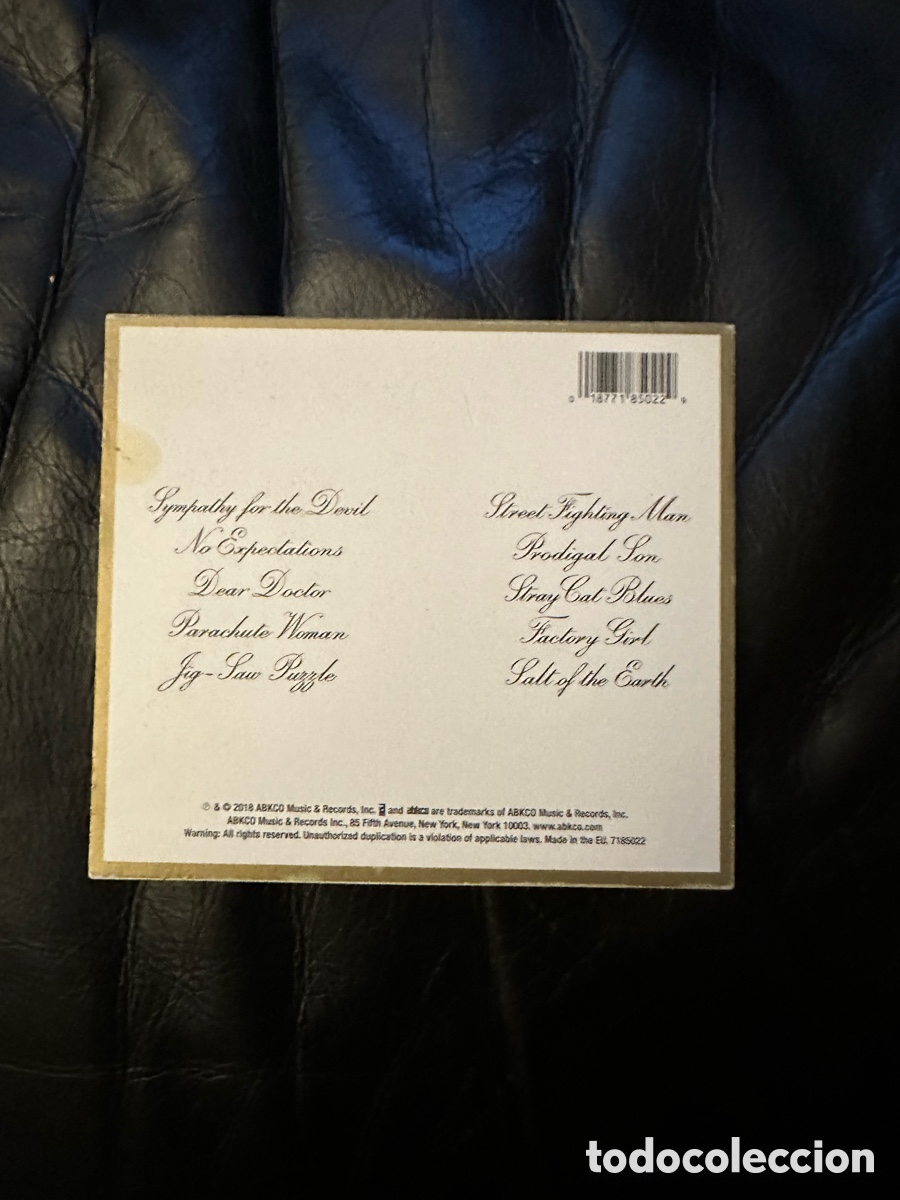 0 18771 85022 9
Sympathy for the Devil
No Expectations
Dear Doctor
Parachute Woman
Jig-Saw Puzzle
Street Fighting Man
Prodigal Son
Stray Cat Blues
Factory Girl
Salt of the Earth
℗ & © 2018 ABKCO Music & Records, Inc. and abkco are trademarks of ABKCO Music & Records, Inc.
ABKCO Music & Records Inc., 85 Fifth Avenue, New York, New York 10003. www.abkco.com
Warning: All rights reserved. Unauthorized duplication is a violation of applicable laws. Made in the EU. 7185022
todocoleccion